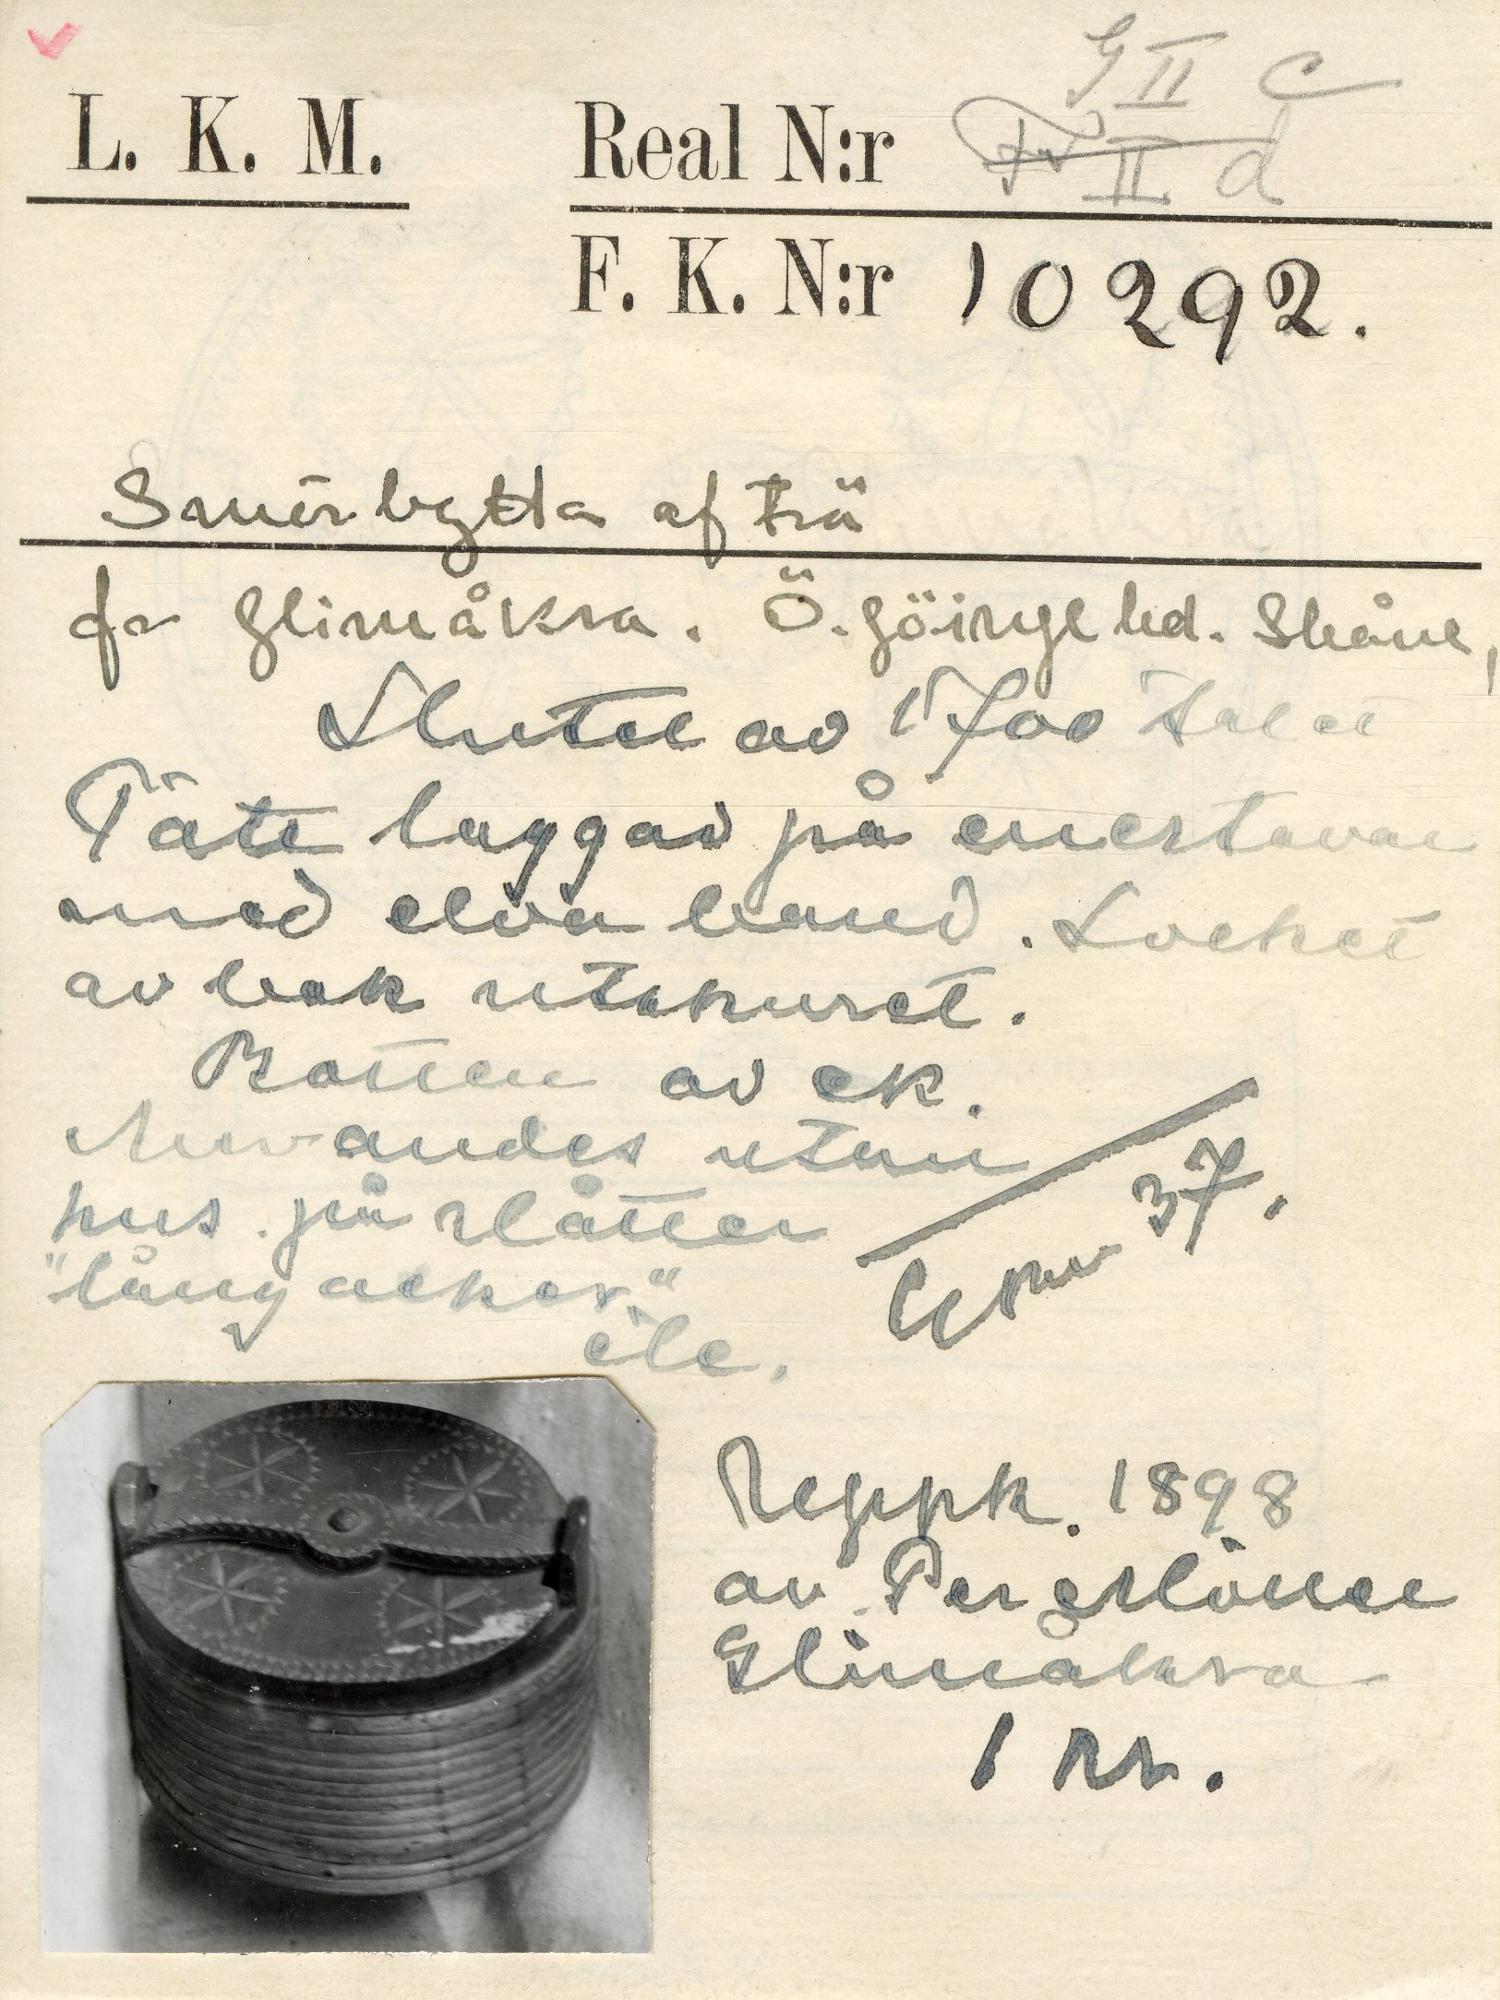 G II C
L. K. M. Real N:r F II d
F. K. N:r 10292.
Smörbytta af trä
fr Glimåkra. Ö. Göinge hd. Skåne,
Slutet av 1700 talet
Täte laggad på enestavar
med elva band. Locket
av bok utskuret.
Botten av ek.
Användes utom
hus på slåtter
"långackor"
etc.
37.
Neppk. 1898
av Per
Glimåkra
1 kr.